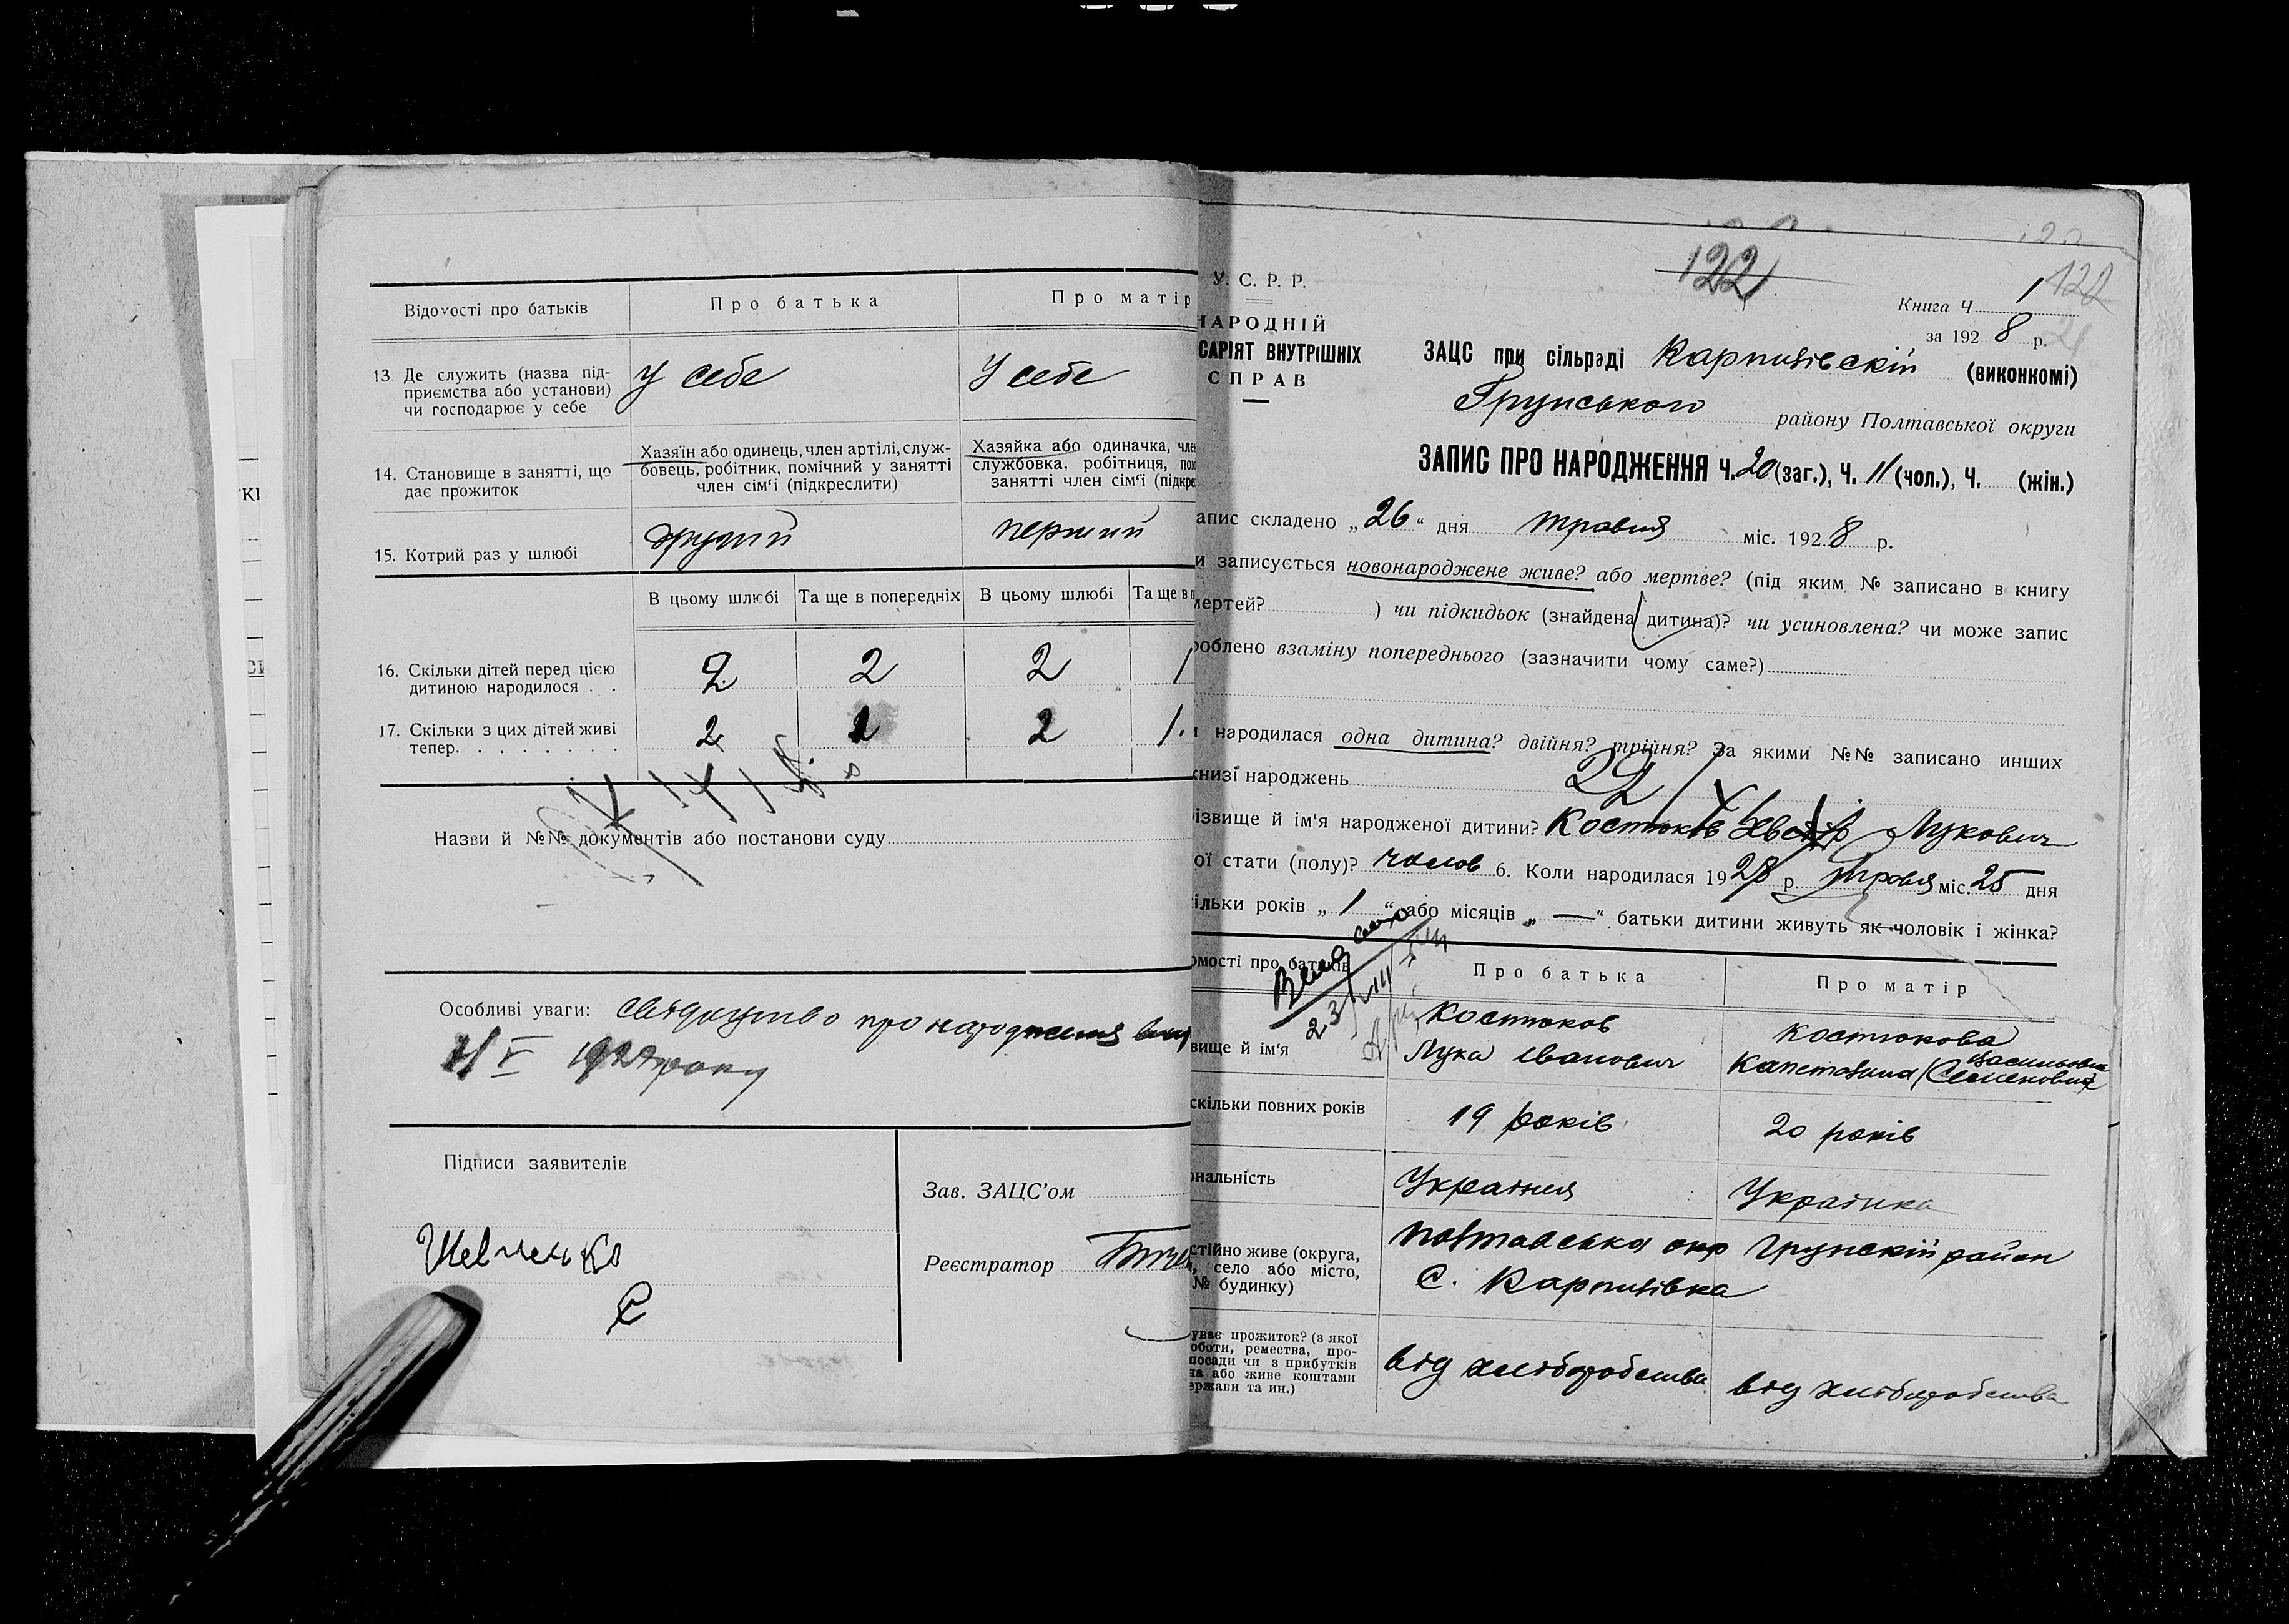 Відомості про батьків
Про батька
Про матір
13. Де служить (назва під-
приємства або установи)
чи господарює у себе
у себе
у себе
14. Становище в занятті, що
дає прожиток
Хазяїн або одинець, член артілі, служ-
бовець, робітник, помічний у занятті
член сім'ї (підкреслити)
Хазяйка або одиначка, чле
службовка, робітниця, пом
занятті член сім'ї (підкре
15. Котрий раз у шлюбі
другий
перший
В цьому шлюбі
Та ще в попередніх
В цьому шлюбі
Та ще в п
16. Скільки дітей перед цією
дитиною народилося . .
2
2
2
1
17. Скільки з цих дітей живі
тепер. . . . . . . .
2
1
2
1.
Назви й №№ документів або постанови суду
Особливі уваги: свідоцтво про народження
V 192 року
Підписи заявителів
Шевченко
Є
Зав. ЗАЦС'ом
Реєстратор
122
У. С. Р. Р.
НАРОДНІЙ
САРІЯТ ВНУТРІШНІХ
СПРАВ
Книга Ч. 1 122
за 1928 р.
ЗАЦС при сільраді Карпилівскій (виконкомі)
Грунського району Полтавської округи
ЗАПИС ПРО НАРОДЖЕННЯ Ч. 20 (заг.), Ч. 11 (чол.), Ч. (жін.)
апис складено „26“ дня травня міс. 1928 р.
и записується новонароджене живе? або мертве? (під яким № записано в книгу
мертей? ) чи підкидьок (знайдена дитина)? чи усиновлена? чи може запис
роблено взаміну попереднього (зазначити чому саме?)
народилася одна дитина? двійня? трійня? За якими №№ записано инших
книзі народжень
22
різвище й ім'я народженої дитини? Костюків Лукович
ої стати (полу)? чолов 6. Коли народилася 1928 р. травня міс. 25 дня
ільки років „1“ або місяців „—“ батьки дитини живуть як чоловік і жінка?
омості про батьків
Про батька
Про матір
23/VIII
вище й ім'я
Костюков
Лука Іванович
Костюкова
Васильовна
Капетовина (Семеновна)
скільки повних років
19 років
20 років
ональність
Українця
Українка
стійно живе (округа,
, село або місто,
№ будинку)
Полтавська окр Грунскій район
с. Карпилівка
уває прожиток? (з якої
оботи, ремества, про-
посади чи з прибутків
на або живе коштами
ержави та ин.)
від хліборобства
від хліборобства